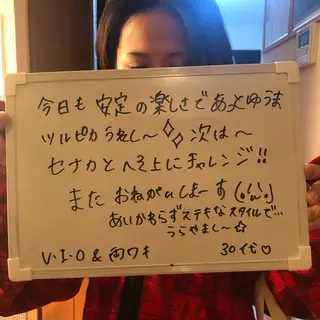 今日も 安定の楽しさであっとゆうま
ツルピカうれし〜✧✧ 次は〜
セナカとへそ上にチャレンジ!!
また おねがいしまーす(о´∪`о)
あいかわらずステキなスタイルで…
うらやまし〜☆
V・I・O & 両ワキ 30代♡